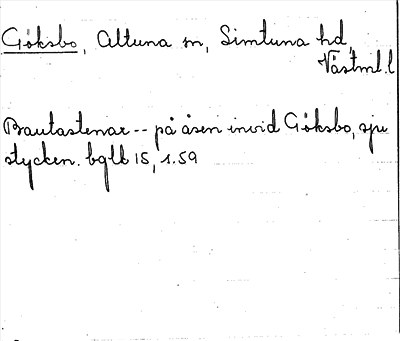 Göksbo, Altuna sn, Simtuna hd,
Västml. l
Bautastenar -- på åsen invid Göksbo, sju
stycken. bgll 15, 1.59